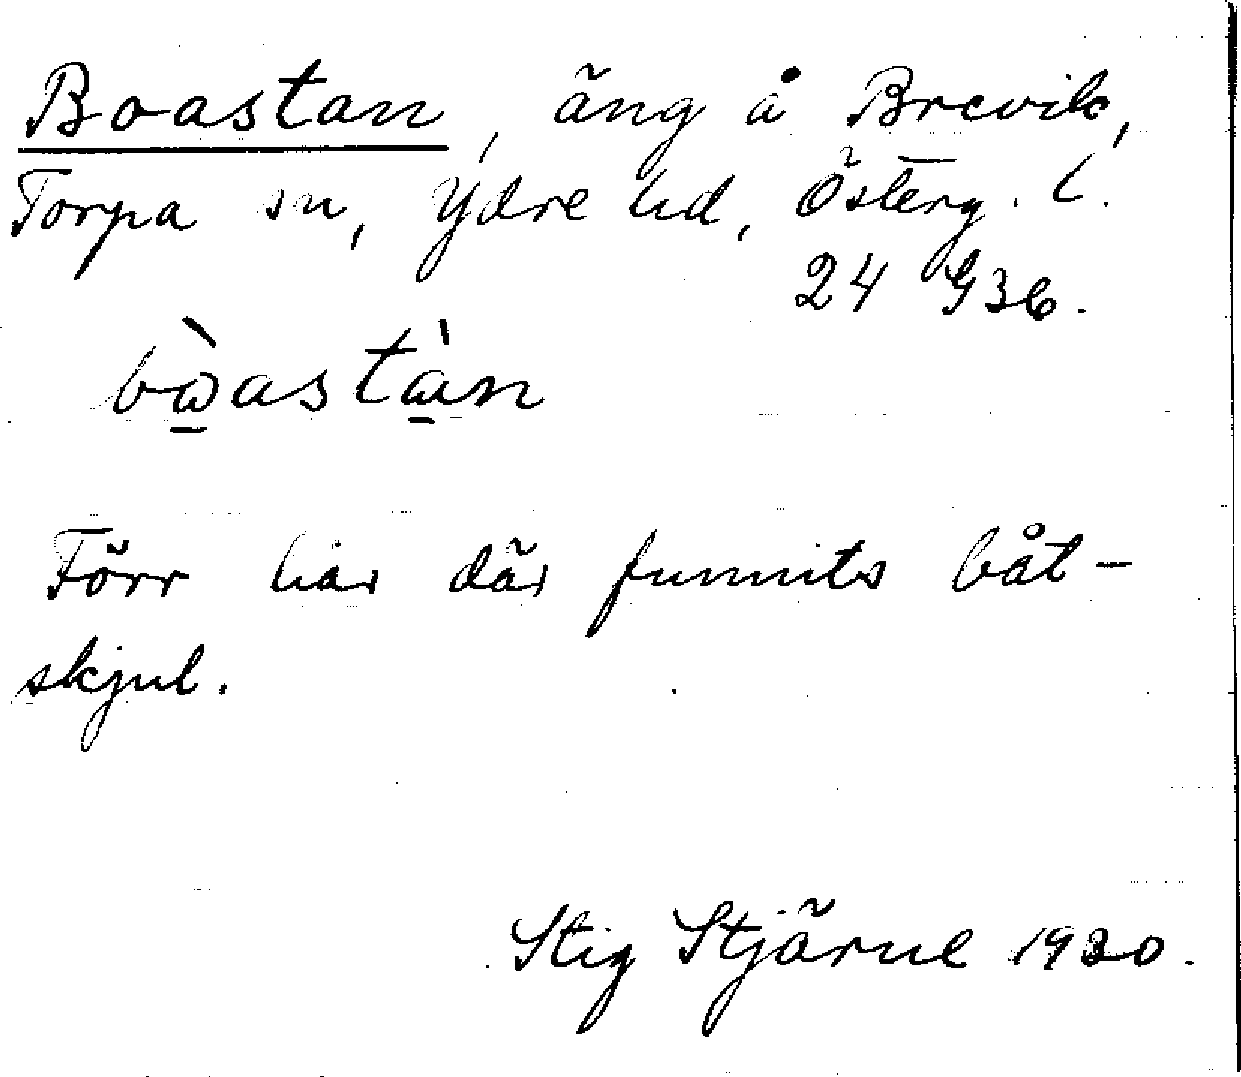 Boastan, äng å Brevik,
Torpa sn, Ydre hd, Österg. l.
24 G36.
bωastan
Förr har där funnits båt-
skjul.
Stig Stjärne 1930.